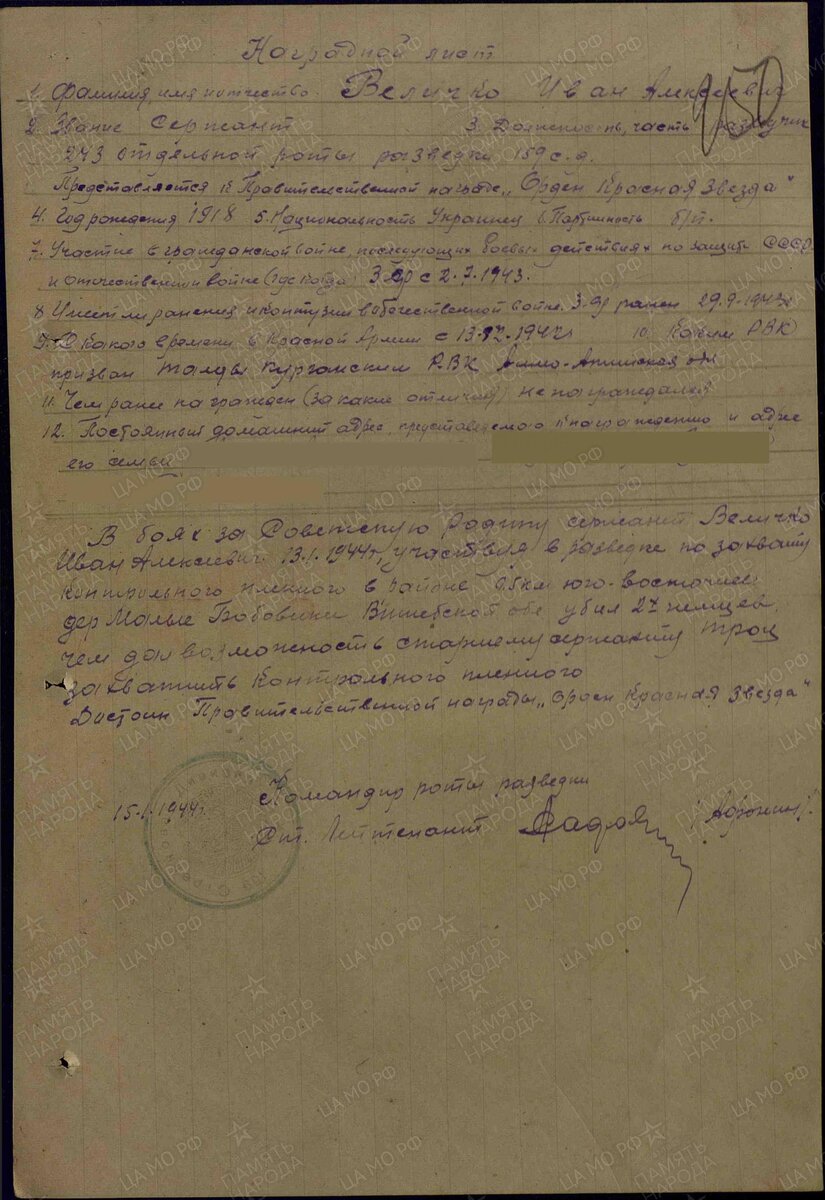 Наградной лист
1. Фамилия, имя и отчество: Величко Иван Алексеевич
2. Звание Сержант 3. Должность, часть разведчик
243 отдельной роты разведки 159 с.д.
Представляется к Правительственной награде „Орден Красная Звезда"
4. Год рождения 1918 5. Национальность Украинец 6. Партийность б/п.
7. Участие в гражданской войне, последующих боевых действиях по защите СССР
и отечественной войне (где когда) 3 БФ с 2.7.1943.
8. Имеет ли ранения и контузии в отечественной войне. ранен 29.9.1943г
9. С какого времени в Красной Армии с 13.12.1942г 10. Каким РВК
призван Талды Курганским РВК Алма-Атинская обл
11. Чем ранее награжден (за какие отличия) не награждался
12. Постоянный домашний адрес, представляемого к награждению и адрес
его семьи
В боях за Советскую Радину сержант Величко
Иван Алексеевич 13.1.1944г, участвуя в разведке по захвату
контрольного пленного в районе 0.5 км юго-восточнее
дер Малые Бабовики Витебской обл убил 2х немцев,
чем дал возможность старшему сержанту
захватить контрольного пленного
Достоин Правительственной награды „Орден Красная Звезда"
Командир роты разведки
15.1.1944г.
Ст. Лейтенант /Афонин/
950
ЦА МО РФ
ПАМЯТЬ НАРОДА